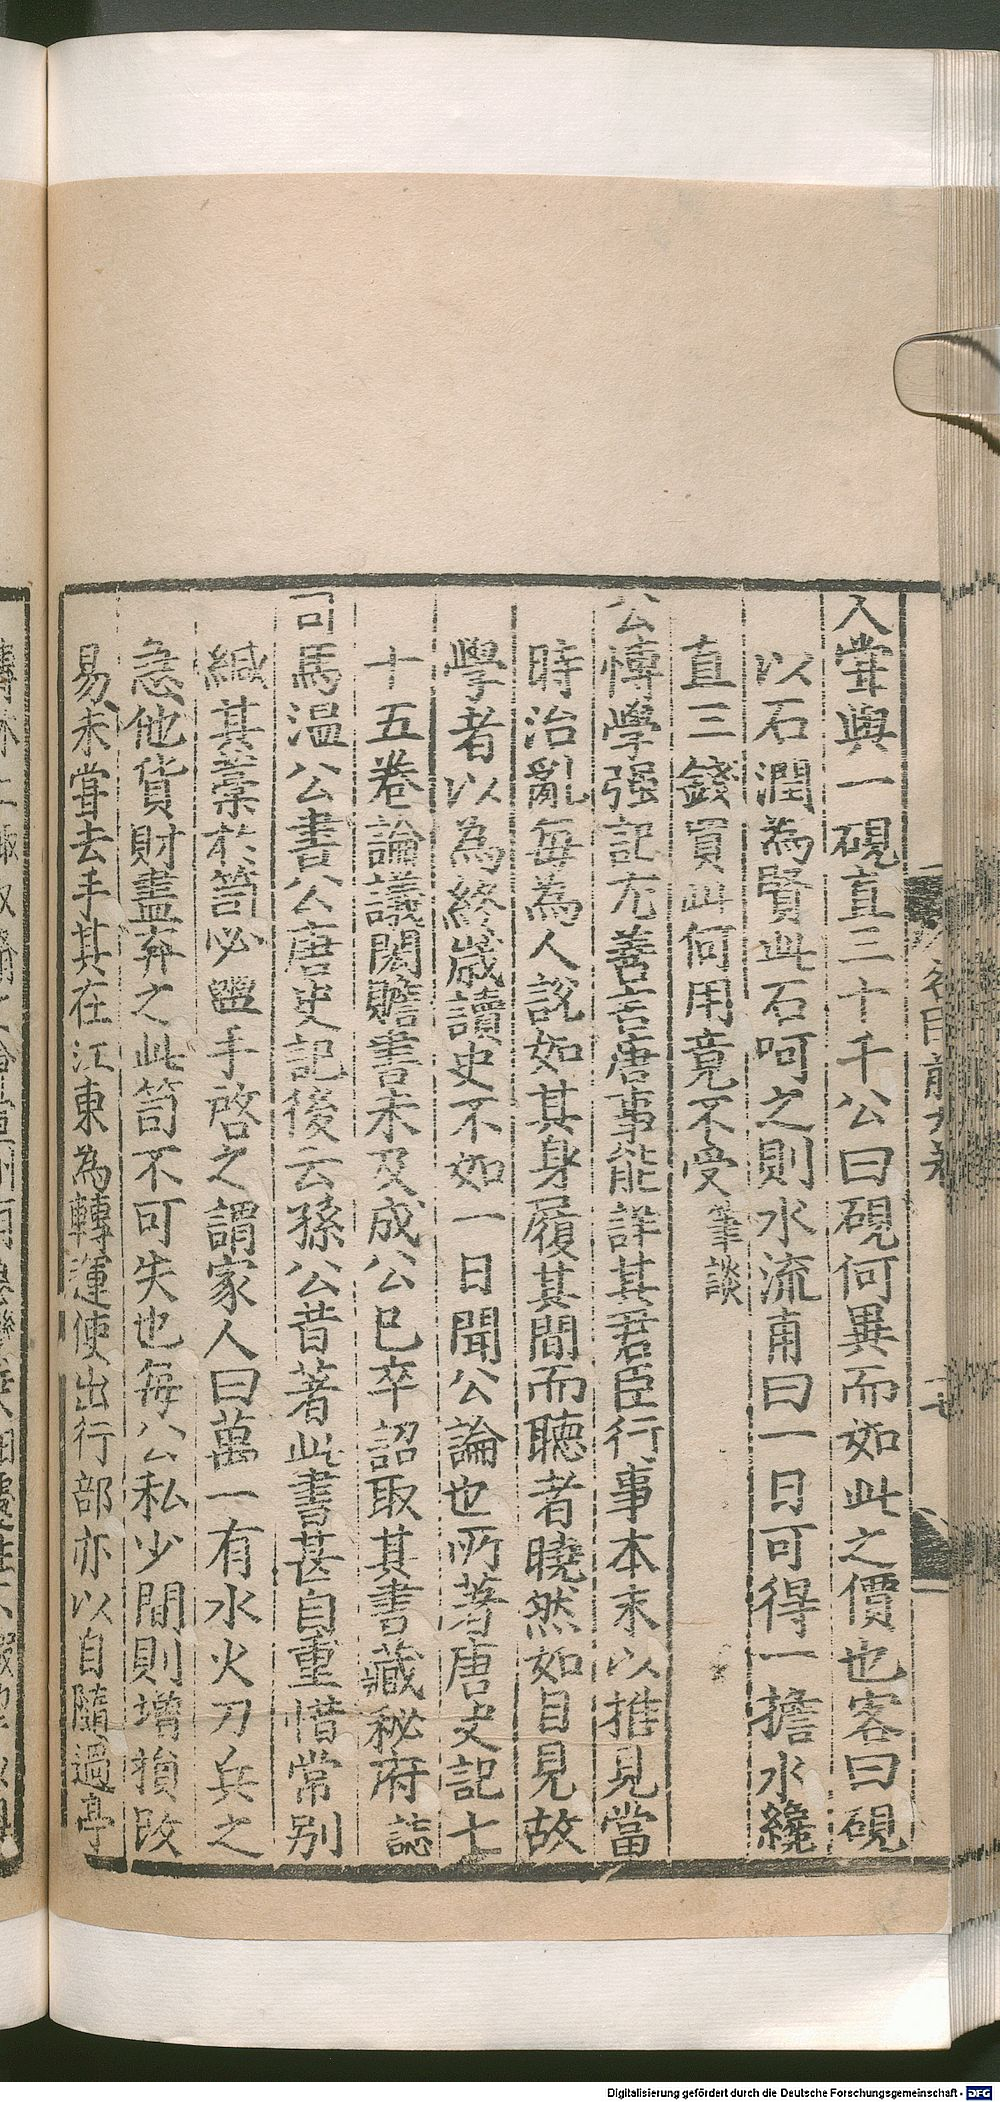 人嘗與一硯直三十千公曰硯何異而如此之價也客曰硯
以石潤為賢此石呵之則水流甫曰一日可得一擔水纔
直三錢買此何用竟不受 筆談
公博學强記尤善言唐事能詳其君臣行事本末以推見當
時治亂每為人說如其身履其間而聽者曉然如目見故
學者以為終歲讀史不如一日聞公論也所著唐史記七
十五卷論議閎贍書未及成公已卒詔取其書藏秘府 誌
司馬溫公書公唐史記後云孫公昔著此書甚自重惜常别
緘其藁於笥必盥手啓之謂家人曰萬一有水火刀兵之
急他貨財盡弃之此笥不可失也每公私少間則增損改
易未嘗去手其在江東為轉運使出行部亦以自隨過亭
Digitalisierung gefördert durch die Deutsche Forschungsgemeinschaft - DFG